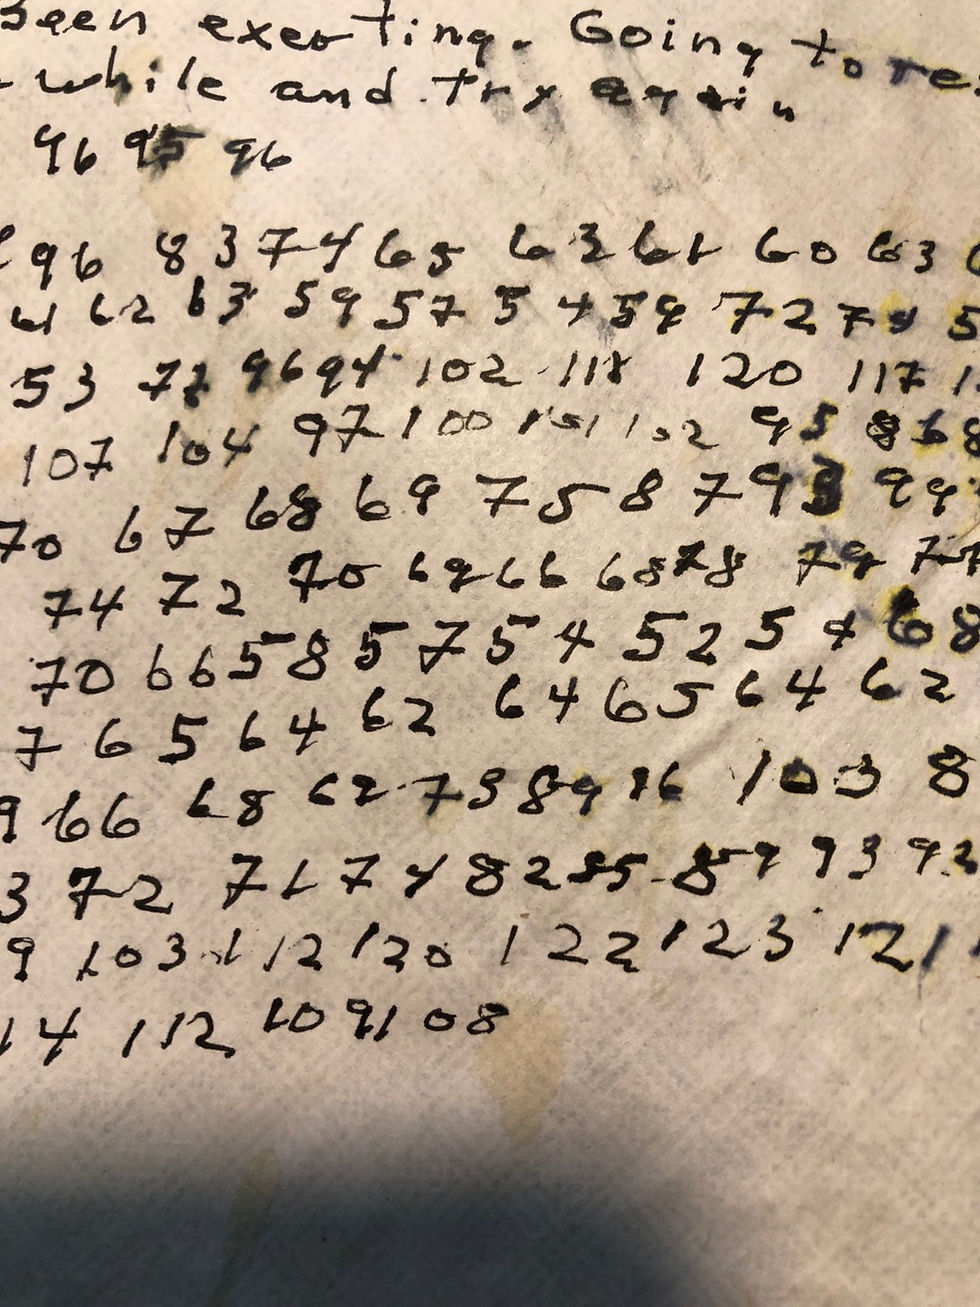 been exerting. Going to re
while and try again
96 95 96
96 83 74 65 63 61 60 63
61 62 63 59 57 54 59 72 74 5
53 72 96 94 102 118 120 117 1
107 104 97 100 101 102 95 86 8
70 67 68 69 75 87 93 99
74 72 70 69 66 68 78 79 77
70 66 58 57 54 52 54 68
7 65 64 62 64 65 64 62
9 66 68 62 75 89 96 103 8
3 72 71 74 82 85 89 93 93
9 103 112 120 122 123 121
14 112 109 108